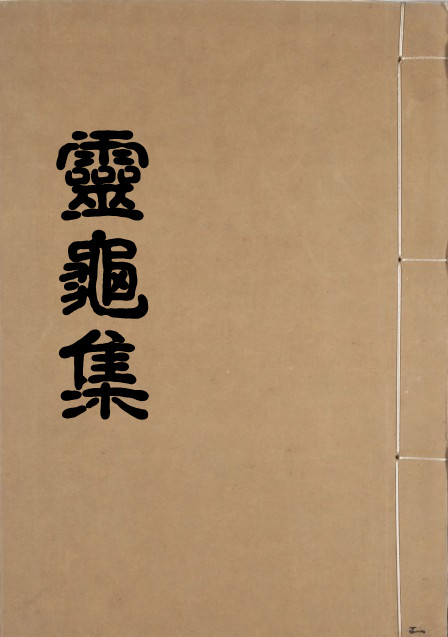 靈龜集